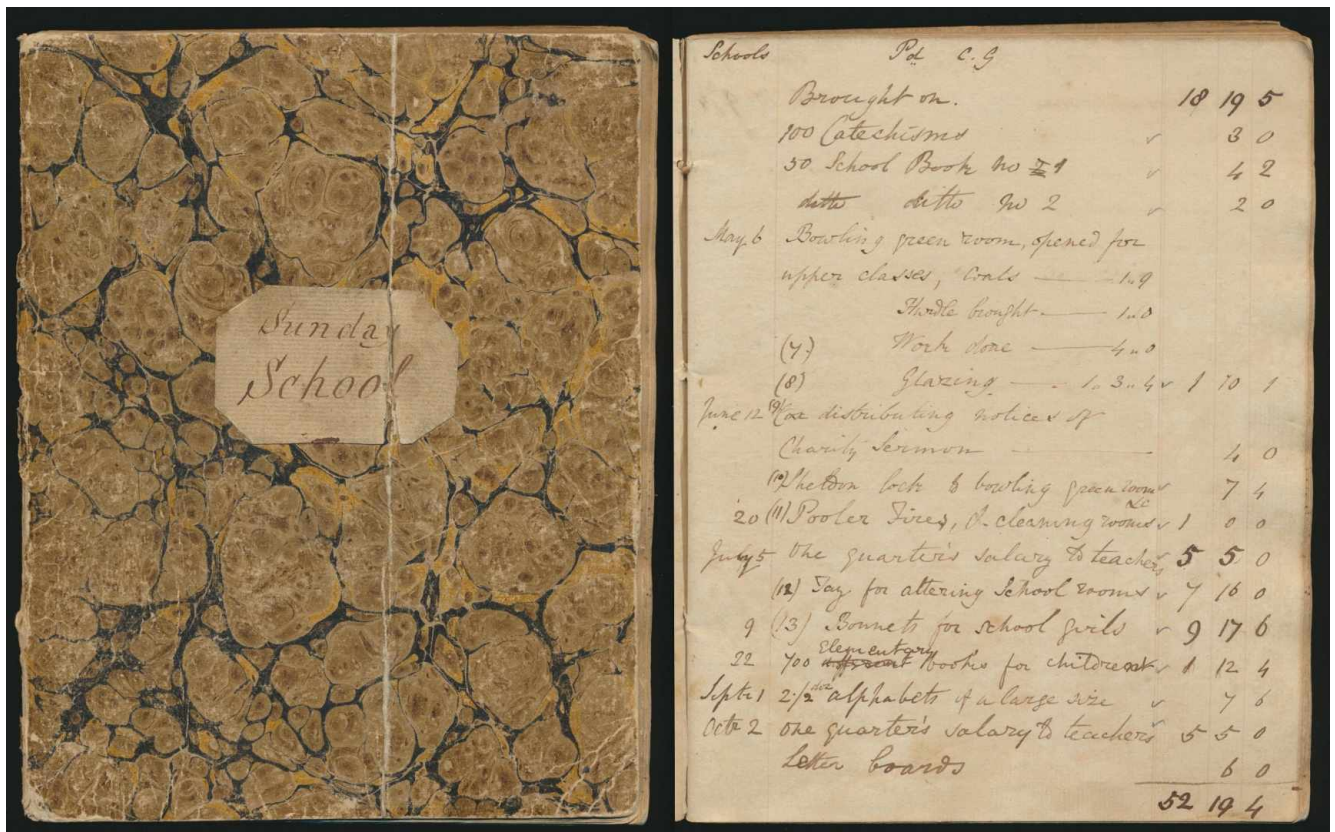 Sunday
School
Schools Pd C. G
Brought on. 18 19 5
100 Catechisms ✓ 3 0
50 School Book no 1 ✓ 4 2
ditto ditto no 2 ✓ 2 0
May 6 Bowling green room, opened for
upper classes, Coals — 1„9
brought — 1„0
(7) Work done — 4„0
(8) Glazing — 1„3„4 ✓ 1 10 1
June 12 (9) distributing notices of
Charity Sermon — 4 0
(10) Sheldon lock to bowling green room ✓ 7 4
&c
20 (11) Pooler Fires, & cleaning rooms ✓ 1 0 0
July 5 One quarter's salary to teachers ✓ 5 5 0
(12) for altering School rooms ✓ 7 16 0
9 (13) Bonnets for school girls ✓ 9 17 6
Elementary
22 700 books for children ✓ 1 12 4
Septr 1 2 1/2 doz alphabets of a large size ✓ 7 6
Octr 2 One quarter's salary to teachers ✓ 5 5 0
Letter boards 6 0
52 19 4